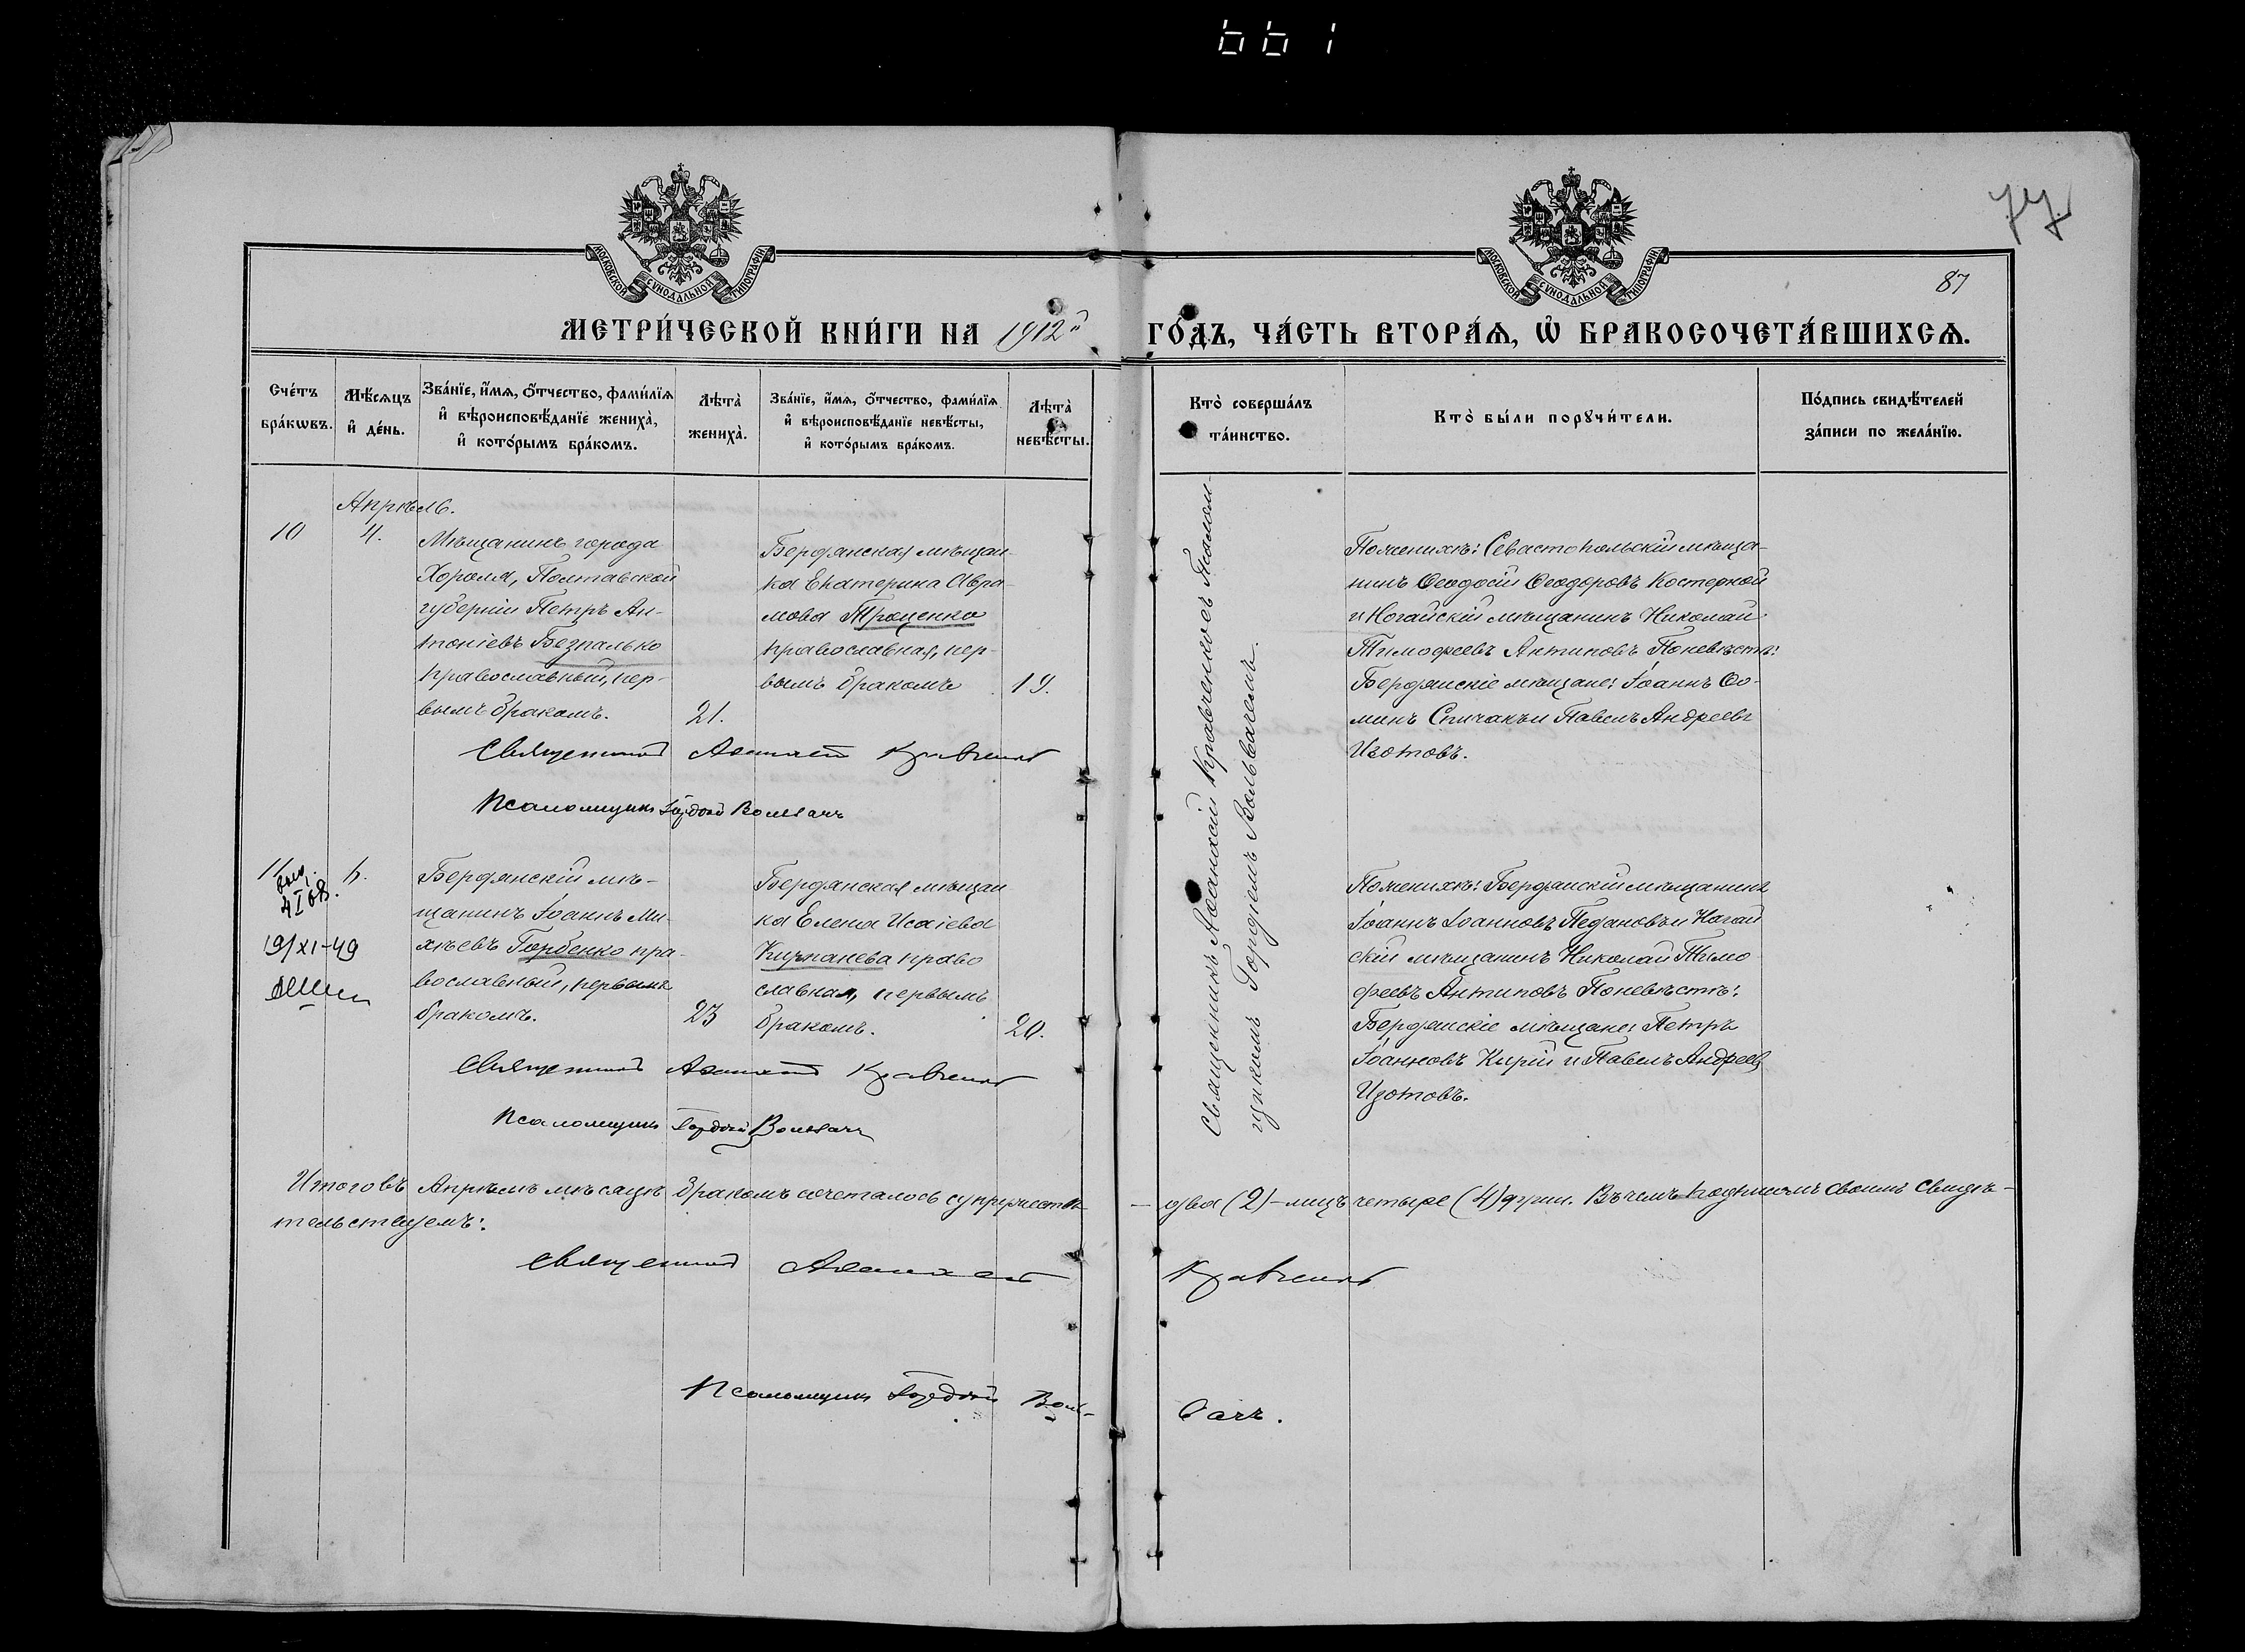 661
77
87
МОСКОВСКОЙ СѴНОДАЛЬНОЙ ТИПОГРАФІИ.
МОСКОВСКОЙ СѴНОДАЛЬНОЙ ТИПОГРАФІИ.
МЕТРИ́ЧЕСКОЙ КНИ́ГИ НА 1912й ГО́ДЪ, ЧА́СТЬ ВТОРА́Ѧ, Ѡ҆ БРАКОСОЧЕТА́ВШИХСѦ.
Сче́тъ
бра́кѡвъ.
Мѣ́сѧцъ
и҆ де́нь.
Зва́нїе, и҆́мѧ, ѻ҆́тчество, фами́лїѧ
и҆ вѣроисповѣ́данїе жениха̀,
и҆ кото́рымъ бра́комъ.
Лѣта̀
жениха̀.
Зва́нїе, и҆́мѧ, ѻ҆́тчество, фами́лїѧ
и҆ вѣроисповѣ́данїе невѣ́сты,
и҆ кото́рымъ бра́комъ.
Лѣта̀
невѣ́сты.
Кто̀ соверша́лъ
та́инство.
Кто̀ бы́ли порꙋчи́тели.
По́дпись свидѣ́телей
за́писи по жела́нїю.
Апрѣль.
10
4.
Мѣщанинъ города
Хороля, Полтавской
губерніи Петръ Ан-
тоніевъ Безпалько
православный, пер-
вымъ бракомъ.
21.
Бердянская мѣщан-
ка Екатерина Авра-
мова Троценко
православная, пер-
вымъ бракомъ
19.
Священникъ Аѳанасій Кравченко
Псаломщикъ Гордій Вольвачъ
Священникъ Аѳанасій Кравченко съ Псалом-
щикомъ Гордіемъ Вольвачемъ.
По женихѣ: Севастопольскій мѣща-
нинъ Ѳеодосій Ѳеодоровъ Костерной
и Ногайскій мѣщанинъ Николай
Тимофеевъ Антиповъ По невѣстѣ:
Бердянскіе мѣщане: Іоаннъ Ѳо-
минъ Спичакъ и Павелъ Андреевъ
Изотовъ.
11
4/I 68.
19/XI-49
Бердянскій мѣ-
щанинъ Іоаннъ Ми-
хѣевъ Горбенко пра-
вославный, первымъ
бракомъ.
23
Бердянская мѣщан
ка Елена Исаіева
православная, первымъ
бракомъ.
20.
Священникъ Аѳанасій Кравченко
Псаломщикъ Гордій Вольвачъ
По женихѣ: Бердянскій мѣщанинъ
Іоаннъ Іоанновъ Педановъ и Ногай
скій мѣщанинъ Николай Тимо
феевъ Антиповъ По невѣстѣ:
Бердянскіе мѣщане: Петръ
Іоанновъ Кирій и Павелъ Андреевъ
Изотовъ.
Итого въ Апрѣлѣ мѣсяцѣ бракомъ сочеталось супружествъ — два (2) – лицъ четыре (4) души. Въ чемъ подписомъ своимъ свидѣ-
тельствуемъ:
Священникъ Аѳанасій Кравченко
Псаломщикъ Гордій Воль-
вачъ.